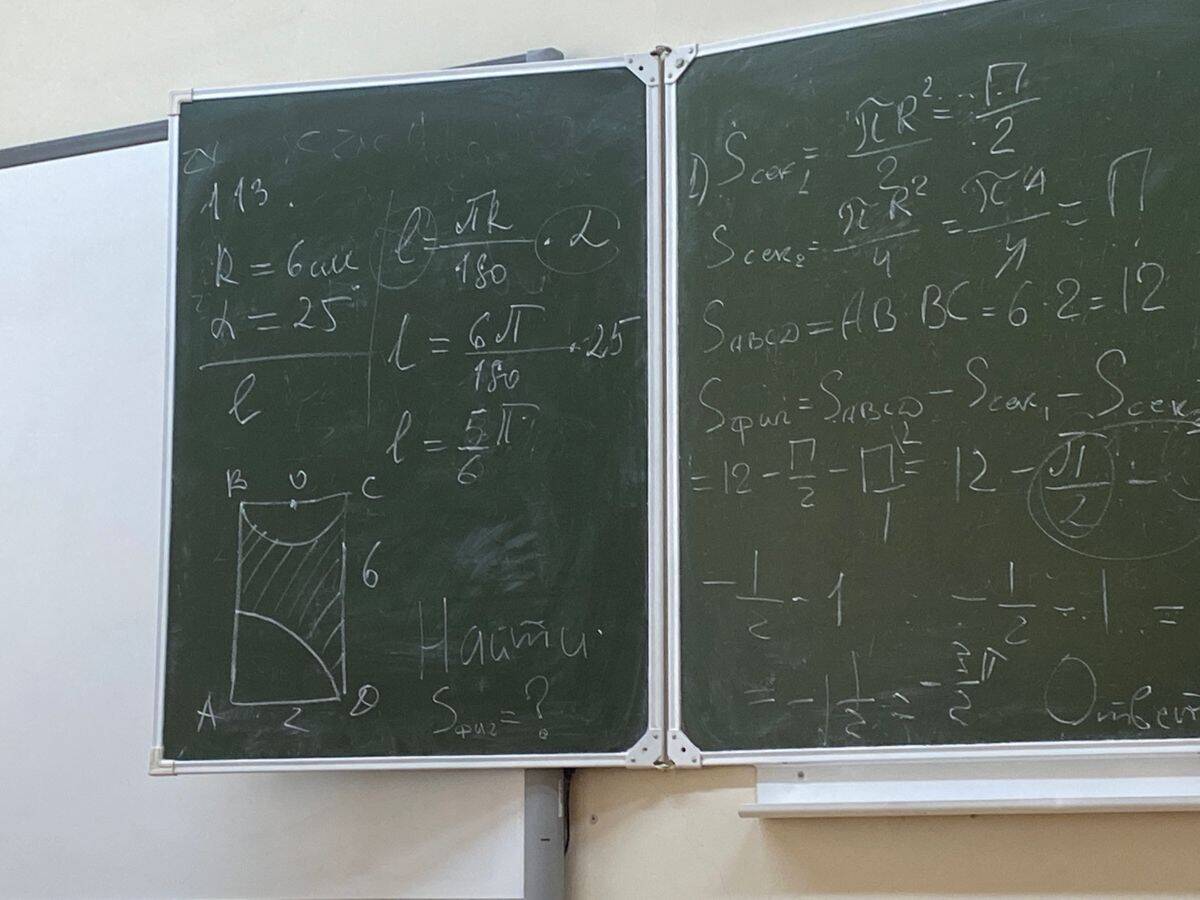 113.
R = 6 см
α = 25°
l
l = πR/180 · α
l = 6π/180 · 25
l = 5/6 π
B O C
6
A 2 D
Найти
Sфиг = ?
1) Sсек₁ = πR²/2 = π/2
Sсек₂ = πR²/4 = π4/4 = π
SABCD = AB · BC = 6 · 2 = 12
Sфиг = SABCD - Sсек₁ - Sсек₂
= 12 - π/2 - π/1 = 12 - π/2 -
- 1/2 - 1 - 1/2 - 1 =
= - 1 1/2 = - 3/2 π Ответ